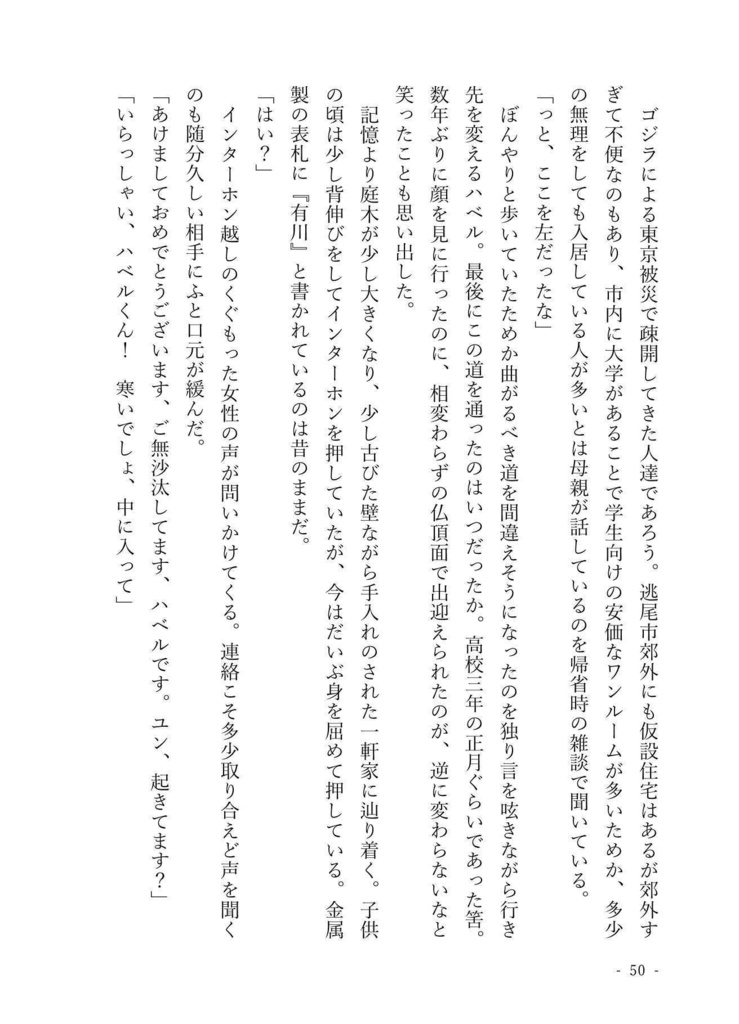 ゴジラによる東京被災で疎開してきた人達であろう。逃尾市郊外にも仮設住宅はあるが郊外す
ぎて不便なのもあり、市内に大学があることで学生向けの安価なワンルームが多いためか、多少
の無理をしても入居している人が多いとは母親が話しているのを帰省時の雑談で聞いている。
「っと、ここを左だったな」
ぼんやりと歩いていたためか曲がるべき道を間違えそうになったのを独り言を呟きながら行き
先を変えるハベル。最後にこの道を通ったのはいつだったか。高校三年の正月ぐらいであった筈。
数年ぶりに顔を見に行ったのに、相変わらずの仏頂面で出迎えられたのが、逆に変わらないなと
笑ったことも思い出した。
記憶より庭木が少し大きくなり、少し古びた壁ながら手入れのされた一軒家に辿り着く。子供
の頃は少し背伸びをしてインターホンを押していたが、今はだいぶ身を屈めて押している。金属
製の表札に『有川』と書かれているのは昔のままだ。
「はい？」
インターホン越しのくぐもった女性の声が問いかけてくる。連絡こそ多少取り合えど声を聞く
のも随分久しい相手にふと口元が緩んだ。
「あけましておめでとうございます、ご無沙汰してます、ハベルです。ユン、起きてます？」
「いらっしゃい、ハベルくん！　寒いでしょ、中に入って」
- 50 -